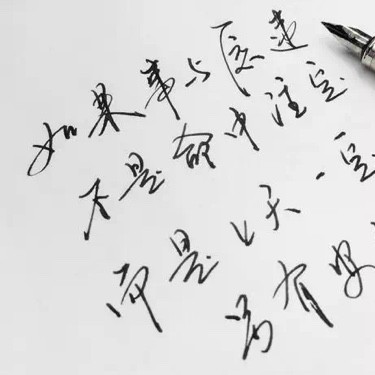 如果事与愿违
不是命中注定
而是上天一定
另有安